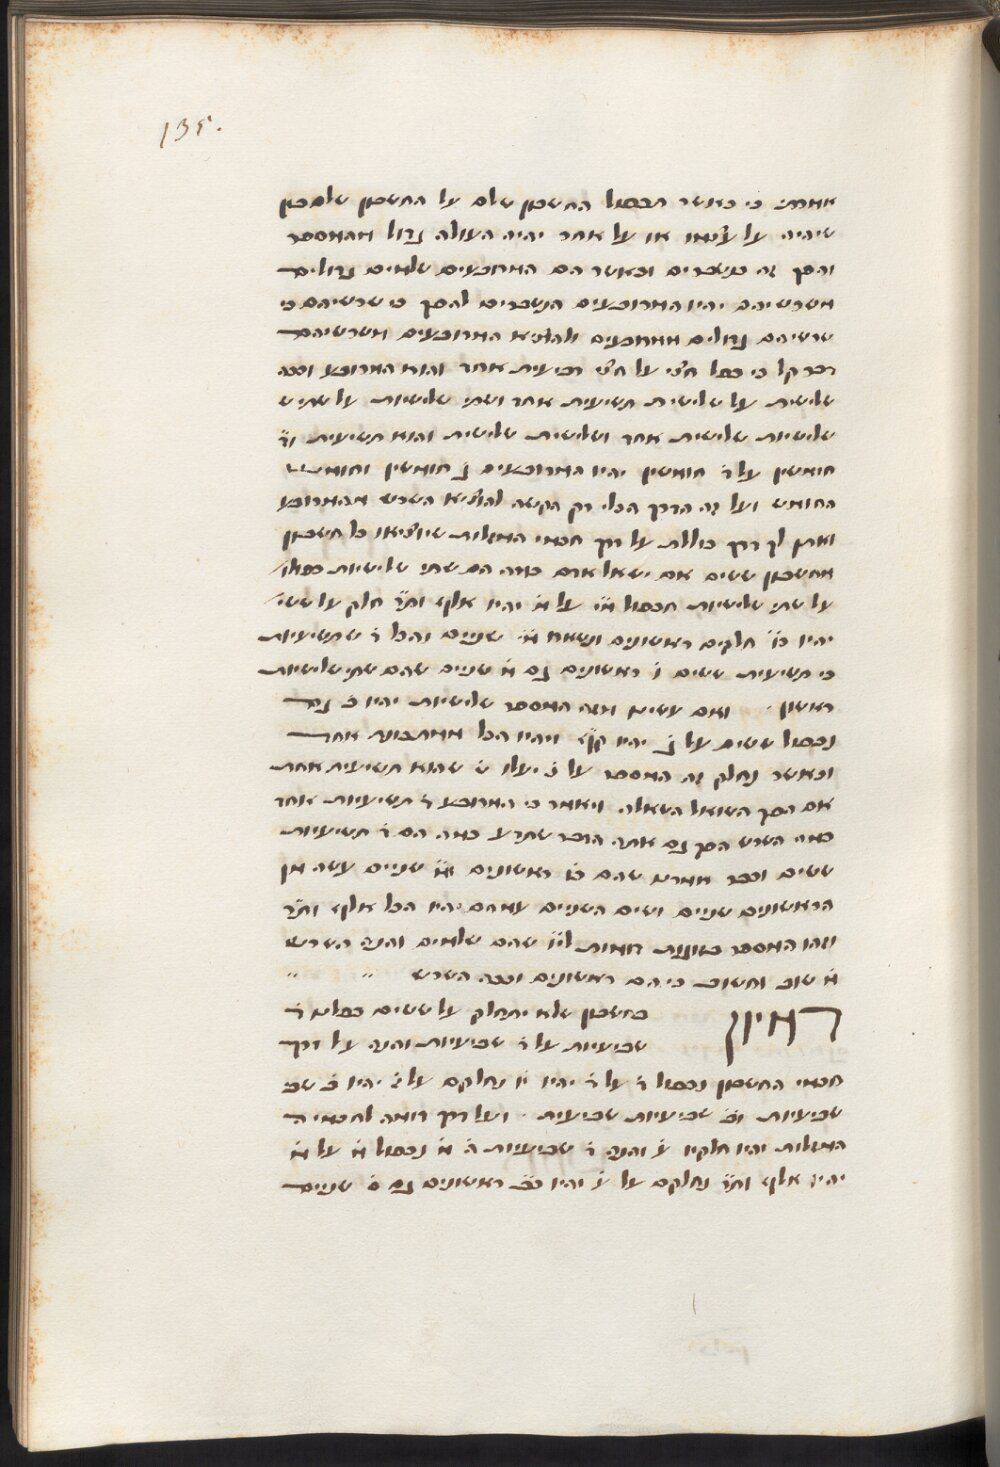 135.
אמרתי כי כאשר תכפול החשבון שלם על החשבון שלם כון
שיהיה על עצמו או על אחר יהיה העולה גדול מהמספר
והפך זה בנשברים וכאשר הם המרובעים שלמים גדולים
משרשיהם יהיו המרובעים הנשברים להפך כי שרשיהם כי
שרשיהם גדולים ממרובעים המרובעים משרשיהם
דבר קל כי כפל חצי על חצי רביעית אחד והוא המרובע וככה
שלישית על שלישית תשיעית אחד ושתי שלישיות על שתי ש
שלישיות שלישית אחד ושלישית שלישית והוא תשיעית וד
חומשין על ד חומשין יהיו המרובעים ג חומשין וחומש
החומש ועל זה הדרך הכל רק הקשה להוציא השרש מהמרובע
ואתן לך דרך כוללת על דרך חכמי המזלות שיוציאו כל חשבון
מחשבון ששים אם ישאל אדם כמה הם שתי שלישיות כפולו
על שתי שלישיות תכפול מ על מ יהיו אלף ות״ר חלק על ששי
יהיו כו חלקים ראשונים ונשאר מ שניים והכל ד תשיעיות
כי תשיעית ששים ו ראשונים גם מ שניים שהם שתי שלישיות
ראשון ואם עשית מזה המספר שלישיות יהיו כ נגד
נכפול ששים על ג יהיו ק״פ ויהיו הכל ממתכונת אחד
וכאשר נחלק זה המספר על ט יעלו כ שהוא תשיעית אחת
אם הפך השואל השאלה ויאמר כי המרובע ד תשיעיות אחד
כמה השרש הפך גם אתה הדבר שתדע כמה הם ד תשיעיות
ששים וכבר אמרנו שהם כו ראשונים ומ שניים עשה מן
הראשונים שניים ושים השניים עמהם יהיו הכל אלף ות״ר
וזהו המספר כמתכונת דומות לי״ו שהם שלמים והנה השרש
מ שוב וחשוב כי הם ראשונים וככה השרש
דמיון בחשבון שלא יתחלק על ששים כפלנו ד
שביעיות על ד שביעיות והנה על דרך
חכמי החשבון נכפול ד על ד יהיו יו נחלקם על ז יהיו ב שבי
שביעיות וב שביעיות שביעית ועל דרך דומה לחכמי ה
המזלות יהיו חלקיו ע והנה ד שביעיות ה מ נכפול מ על מ
יהיו אלף ות״ר נחלקם על ע יהיו כב ראשונים גם ס שניים